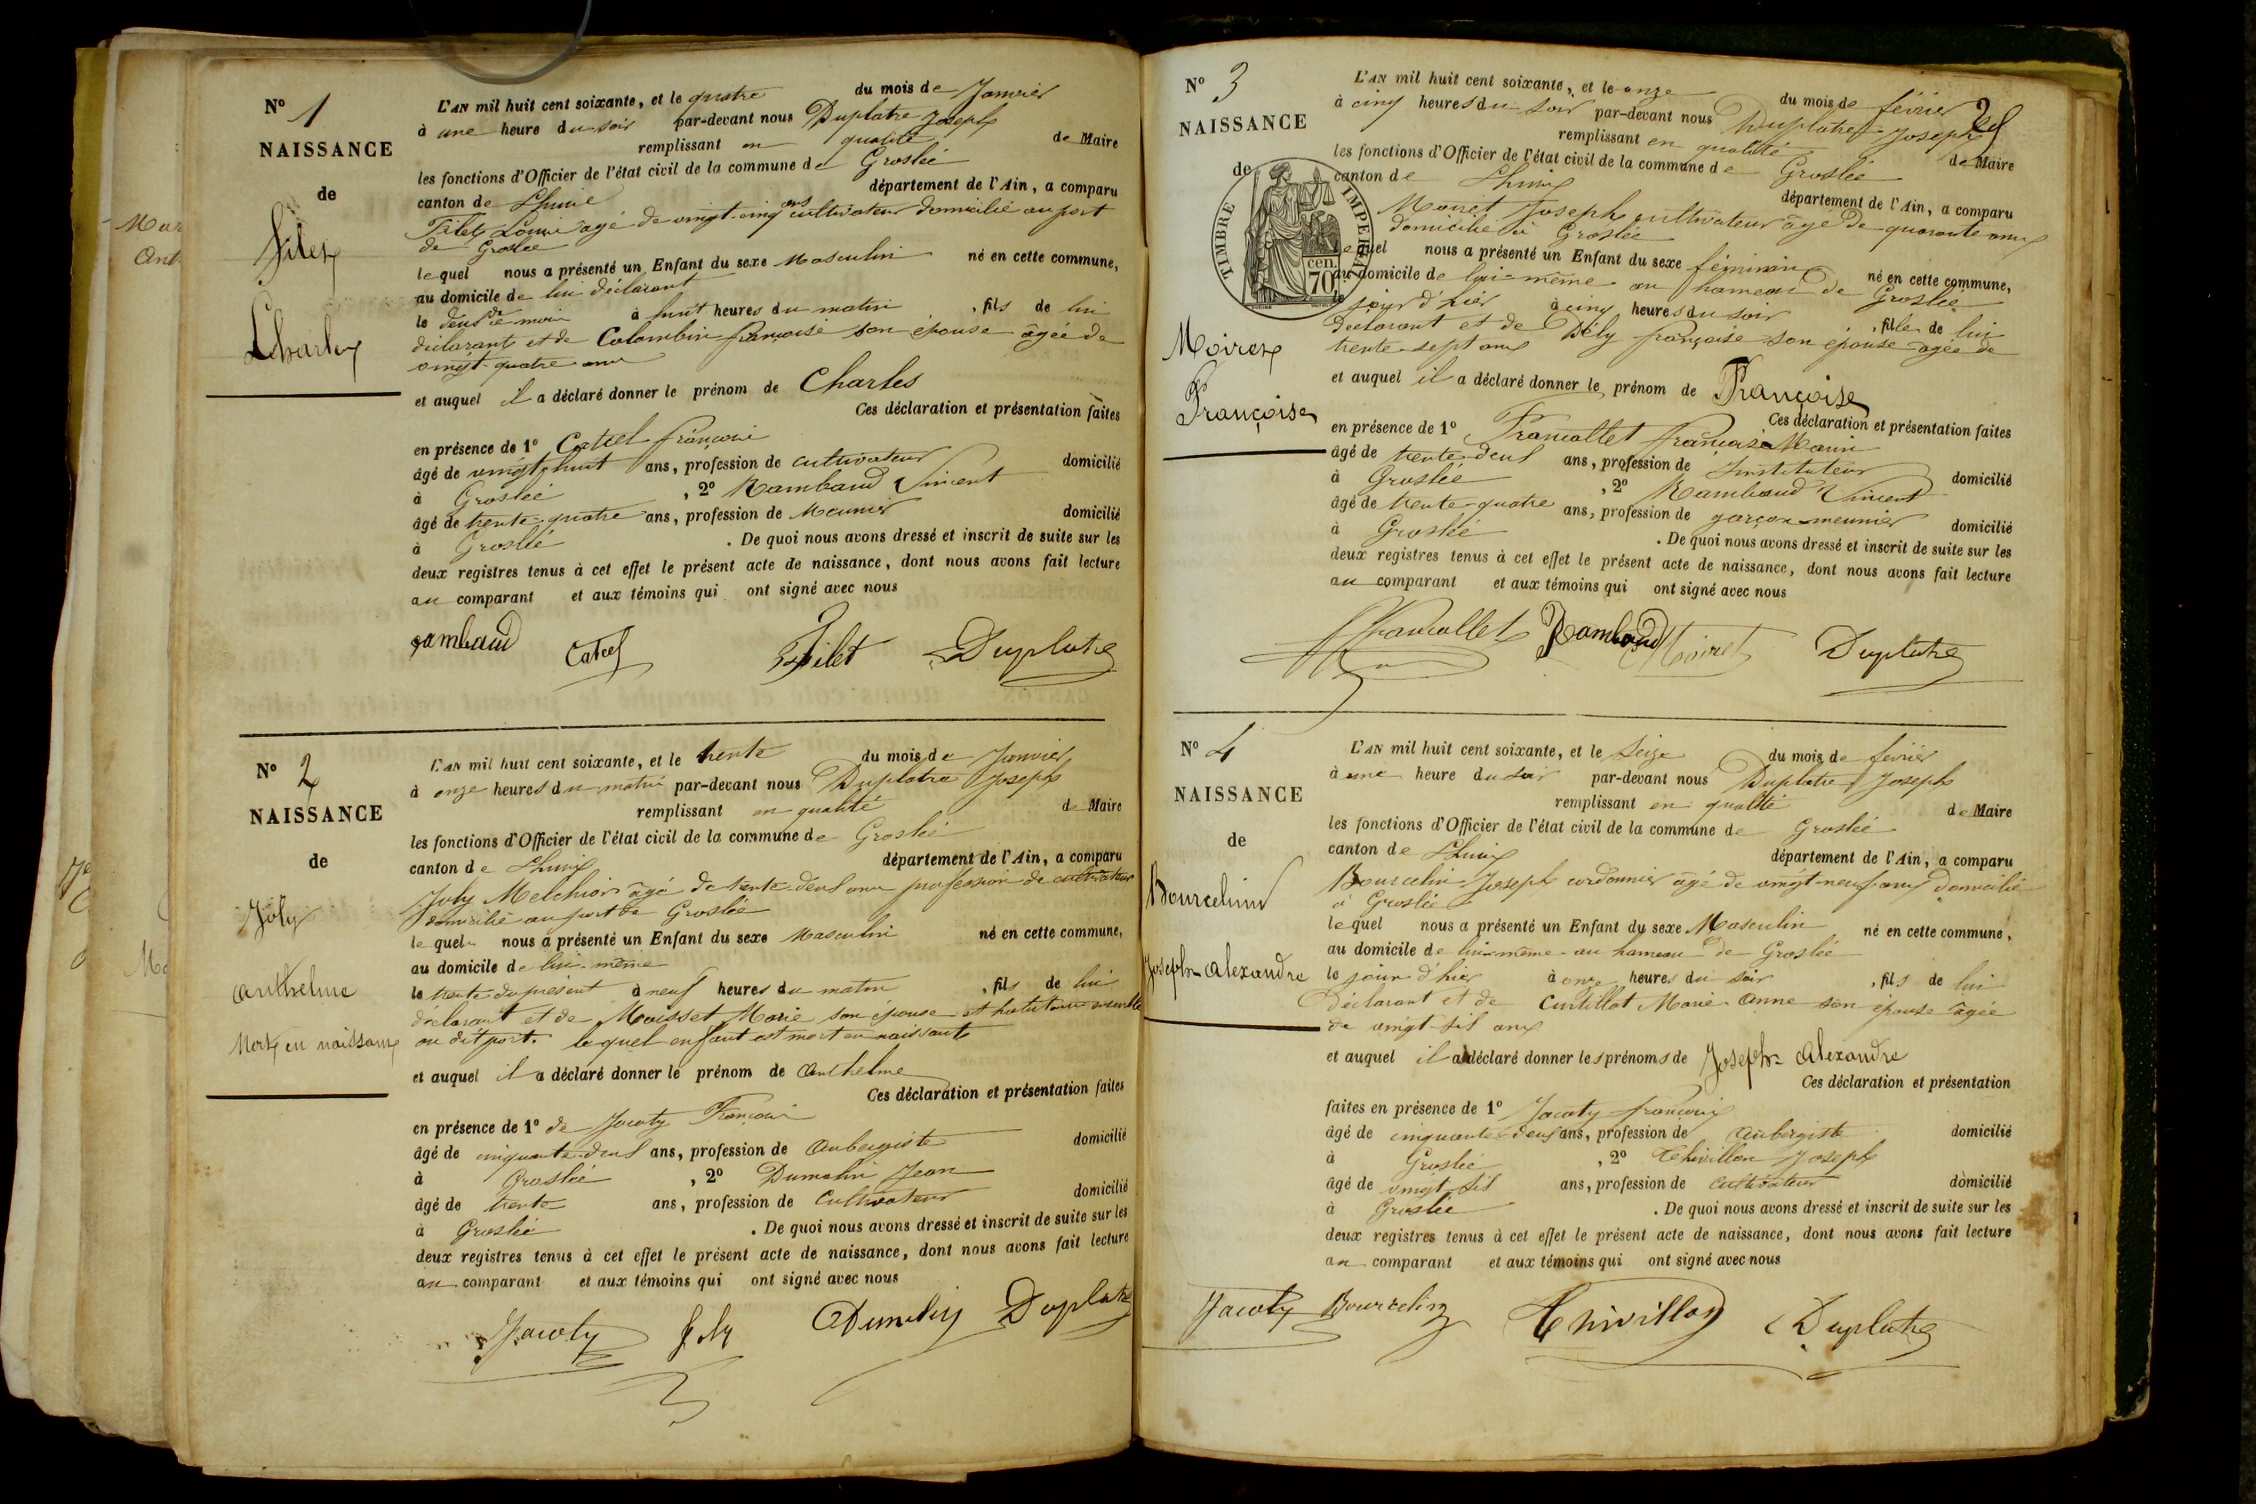 N° 1
NAISSANCE
de
Filet
Charles
L'AN mil huit cent soixante, et le quatre du mois de Janvier
à une heure du soir par-devant nous Duplatre Joseph
remplissant en qualité de Maire
les fonctions d'Officier de l'état civil de la commune de Groslée
canton de Lhuis département de l'Ain, a comparu
Filet Louis âgé de vingt-cinq ans cultivateur domicilié au port
de Groslée
lequel nous a présenté un Enfant du sexe Masculin né en cette commune,
au domicile de lui déclarant
le deux de ce mois à huit heures du matin, fils de lui
déclarant et de Colombin françoise son épouse âgée de
vingt-quatre ans
et auquel il a déclaré donner le prénom de Charles
Ces déclaration et présentation faites
en présence de 1° Catcel françois
âgé de vingt huit ans, profession de cultivateur domicilié
à Groslée, 2° Rambaud Vincent
âgé de trente-quatre ans, profession de Meunier domicilié
à Groslée. De quoi nous avons dressé et inscrit de suite sur les
deux registres tenus à cet effet le présent acte de naissance, dont nous avons fait lecture
au comparant et aux témoins qui ont signé avec nous
rambaud Catcel Filet Duplatre
N° 2
NAISSANCE
de
Joly
Anthelme
Mort en naissant
L'AN mil huit cent soixante, et le trente du mois de Janvier
à onze heures du matin par-devant nous Duplatre Joseph
remplissant en qualité de Maire
les fonctions d'Officier de l'état civil de la commune de Groslée
canton de Lhuis département de l'Ain, a comparu
Joly Melchior âgé de trente-deux ans profession de cultivateur
domicilié au port de Groslée
lequel nous a présenté un Enfant du sexe Masculin né en cette commune,
au domicile de lui-même
le trente du présent à neuf heures du matin, fils de lui
déclarant et de Moisset Marie son épouse et
au dit port. lequel enfant est mort en naissant
et auquel il a déclaré donner le prénom de Anthelme
Ces déclaration et présentation faites
en présence de 1° de Jacoty François
âgé de cinquante-deux ans, profession de Aubergiste domicilié
à Groslée, 2° Dumolin Jean
âgé de trente ans, profession de Cultivateur domicilié
à Groslée. De quoi nous avons dressé et inscrit de suite sur les
deux registres tenus à cet effet le présent acte de naissance, dont nous avons fait lecture
au comparant et aux témoins qui ont signé avec nous
Jacoty Joly Dumolin Duplatre
N° 3
NAISSANCE
de
Moiret
Françoise
TIMBRE IMPERIAL
70 cen.
L'AN mil huit cent soixante, et le onze du mois de février
à cinq heures du soir par-devant nous Duplatre Joseph
remplissant en qualité de Maire
les fonctions d'Officier de l'état civil de la commune de Groslée
canton de Lhuis département de l'Ain, a comparu
Moiret Joseph cultivateur âgé de quarante ans
domicilié à Groslée
lequel nous a présenté un Enfant du sexe féminin né en cette commune,
au domicile de lui-même au hameau de Groslée
le jour d'hier à cinq heures du soir, fille de lui
déclarant et de Dély françoise son épouse âgée de
trente-sept ans
et auquel il a déclaré donner le prénom de Françoise
Ces déclaration et présentation faites
en présence de 1° Francallet
âgé de trente-deux ans, profession de Instituteur domicilié
à Groslée, 2° Rambaud Vincent
âgé de trente-quatre ans, profession de garçon-meunier domicilié
à Groslée. De quoi nous avons dressé et inscrit de suite sur les
deux registres tenus à cet effet le présent acte de naissance, dont nous avons fait lecture
au comparant et aux témoins qui ont signé avec nous
Francallet Rambaud Moiret Duplatre
N° 4
NAISSANCE
de
Bourcelin
Joseph-Alexandre
L'AN mil huit cent soixante, et le seize du mois de février
à une heure du soir par-devant nous Duplatre Joseph
remplissant en qualité de Maire
les fonctions d'Officier de l'état civil de la commune de Groslée
canton de Lhuis département de l'Ain, a comparu
Bourcelin Joseph cordonnier âgé de vingt-neuf ans domicilié
à Groslée
lequel nous a présenté un Enfant du sexe Masculin né en cette commune,
au domicile de lui-même au hameau de Groslée
le jour d'hier à onze heures du soir, fils de lui
déclarant et de Curtillat Marie-Anne son épouse âgée
de vingt-six ans
et auquel il a déclaré donner les prénoms de Joseph-Alexandre
Ces déclaration et présentation
faites en présence de 1° Jacoty françois
âgé de cinquante-deux ans, profession de Aubergiste domicilié
à Groslée, 2° Thivillon Joseph
âgé de vingt-six ans, profession de Cultivateur domicilié
à Groslée. De quoi nous avons dressé et inscrit de suite sur les
deux registres tenus à cet effet le présent acte de naissance, dont nous avons fait lecture
au comparant et aux témoins qui ont signé avec nous
Jacoty Bourcelin Thivillon Duplatre